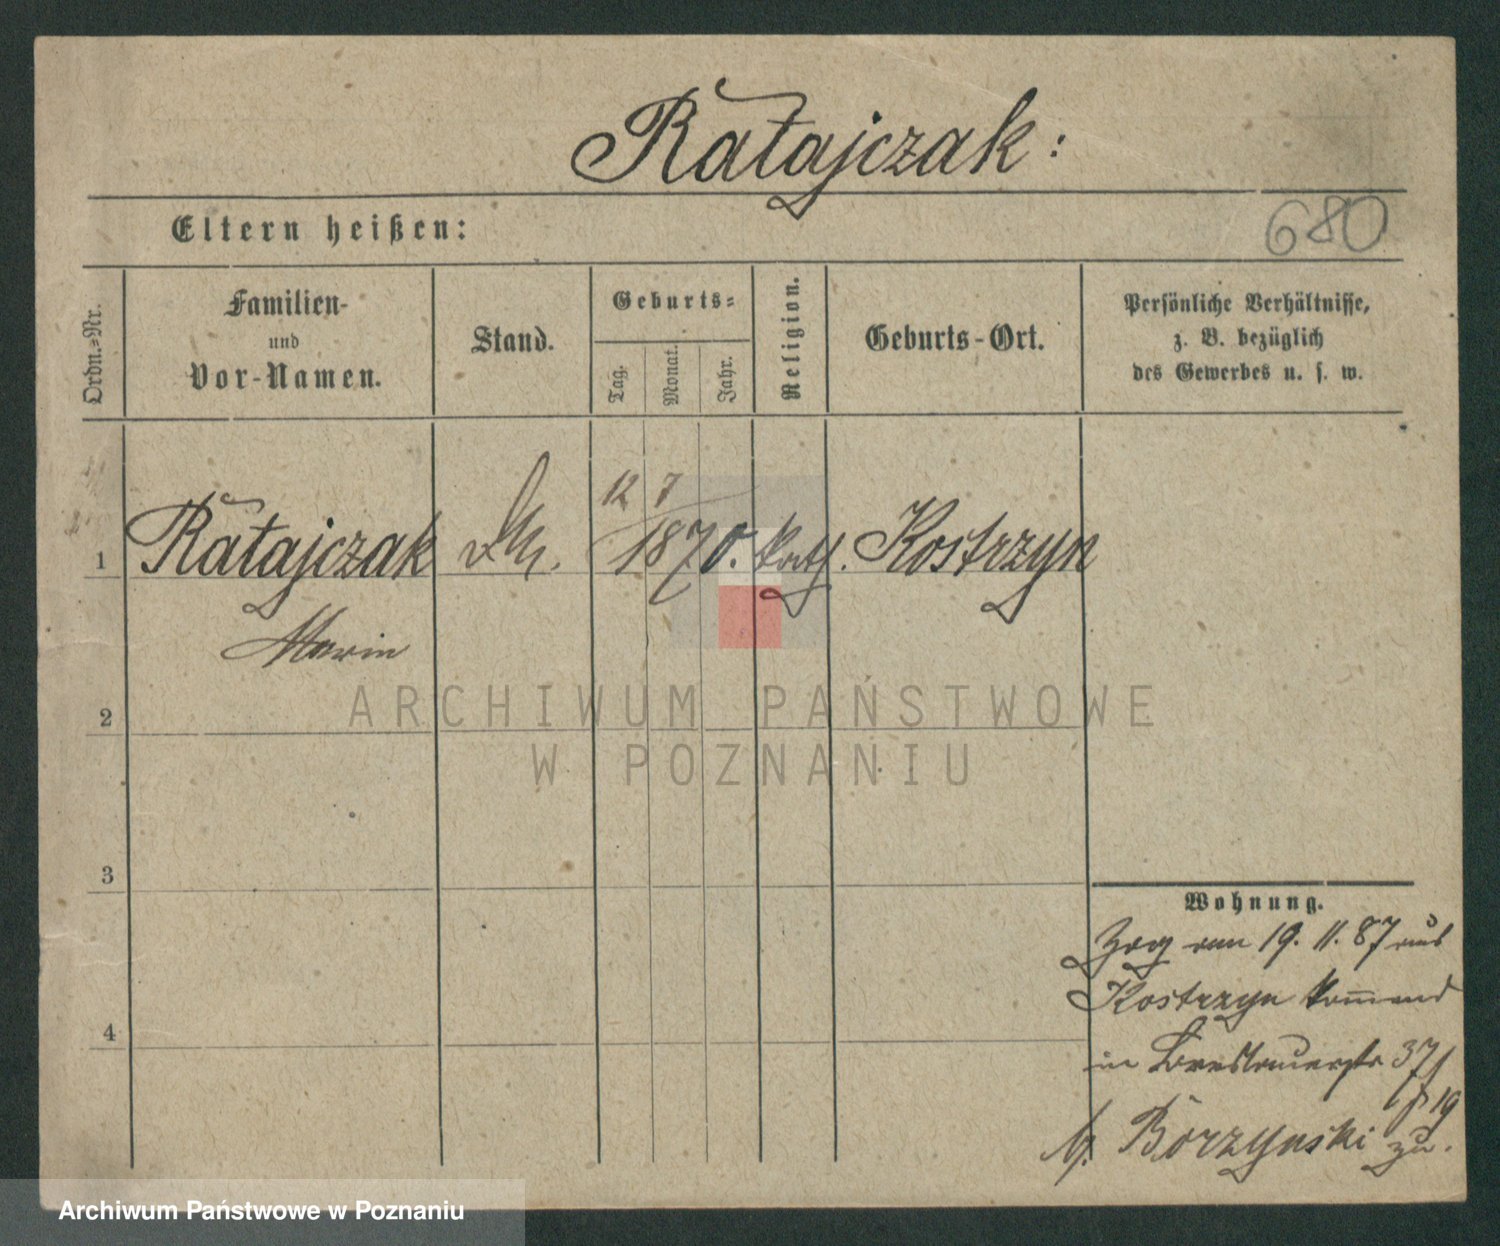 Ratajczak:
680
Eltern heißen:
Ordn.-Nr.
Familien-
und
Vor-Namen.
Stand.
Geburts-
Tag.
Monat.
Jahr.
Religion.
Geburts-Ort.
Persönliche Verhältnisse,
z. B. bezüglich
des Gewerbes u. s. w.
12 7
1 Ratajczak 1870. kath. Kostrzyn
Marin
2
ARCHIWUM PAŃSTWOWE
W POZNANIU
3
4
Wohnung.
Zog am 19. 11. 87 aus
Kostrzyn kommend
in Breslauerstr 37/
19
b. Borzynski zu.
Archiwum Państwowe w Poznaniu